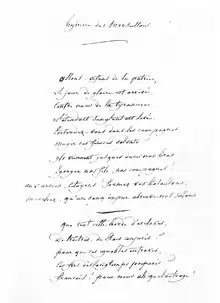 Hymne des Marseillois
Allons, enfans de la patrie,
Le jour de gloire est arrivé
Contre nous de la tyrannie
L'étendart sanglant est levé.
Entendez-vous dans les campagnes
Mugir ces féroces soldats
Ils viennent jusques dans nos bras
Egorger nos fils, nos compagnes!
aux armes, citoyens! Formez vos bataillons,
marchez, qu'un sang impur abreuve nos sillons
Que veut cette horde d'esclaves,
de traitres, de Rois conjurés?
pour qui ces ignobles entraves,
Ces fers dès longtemps préparés?
français! pour nous ah quel outrage!